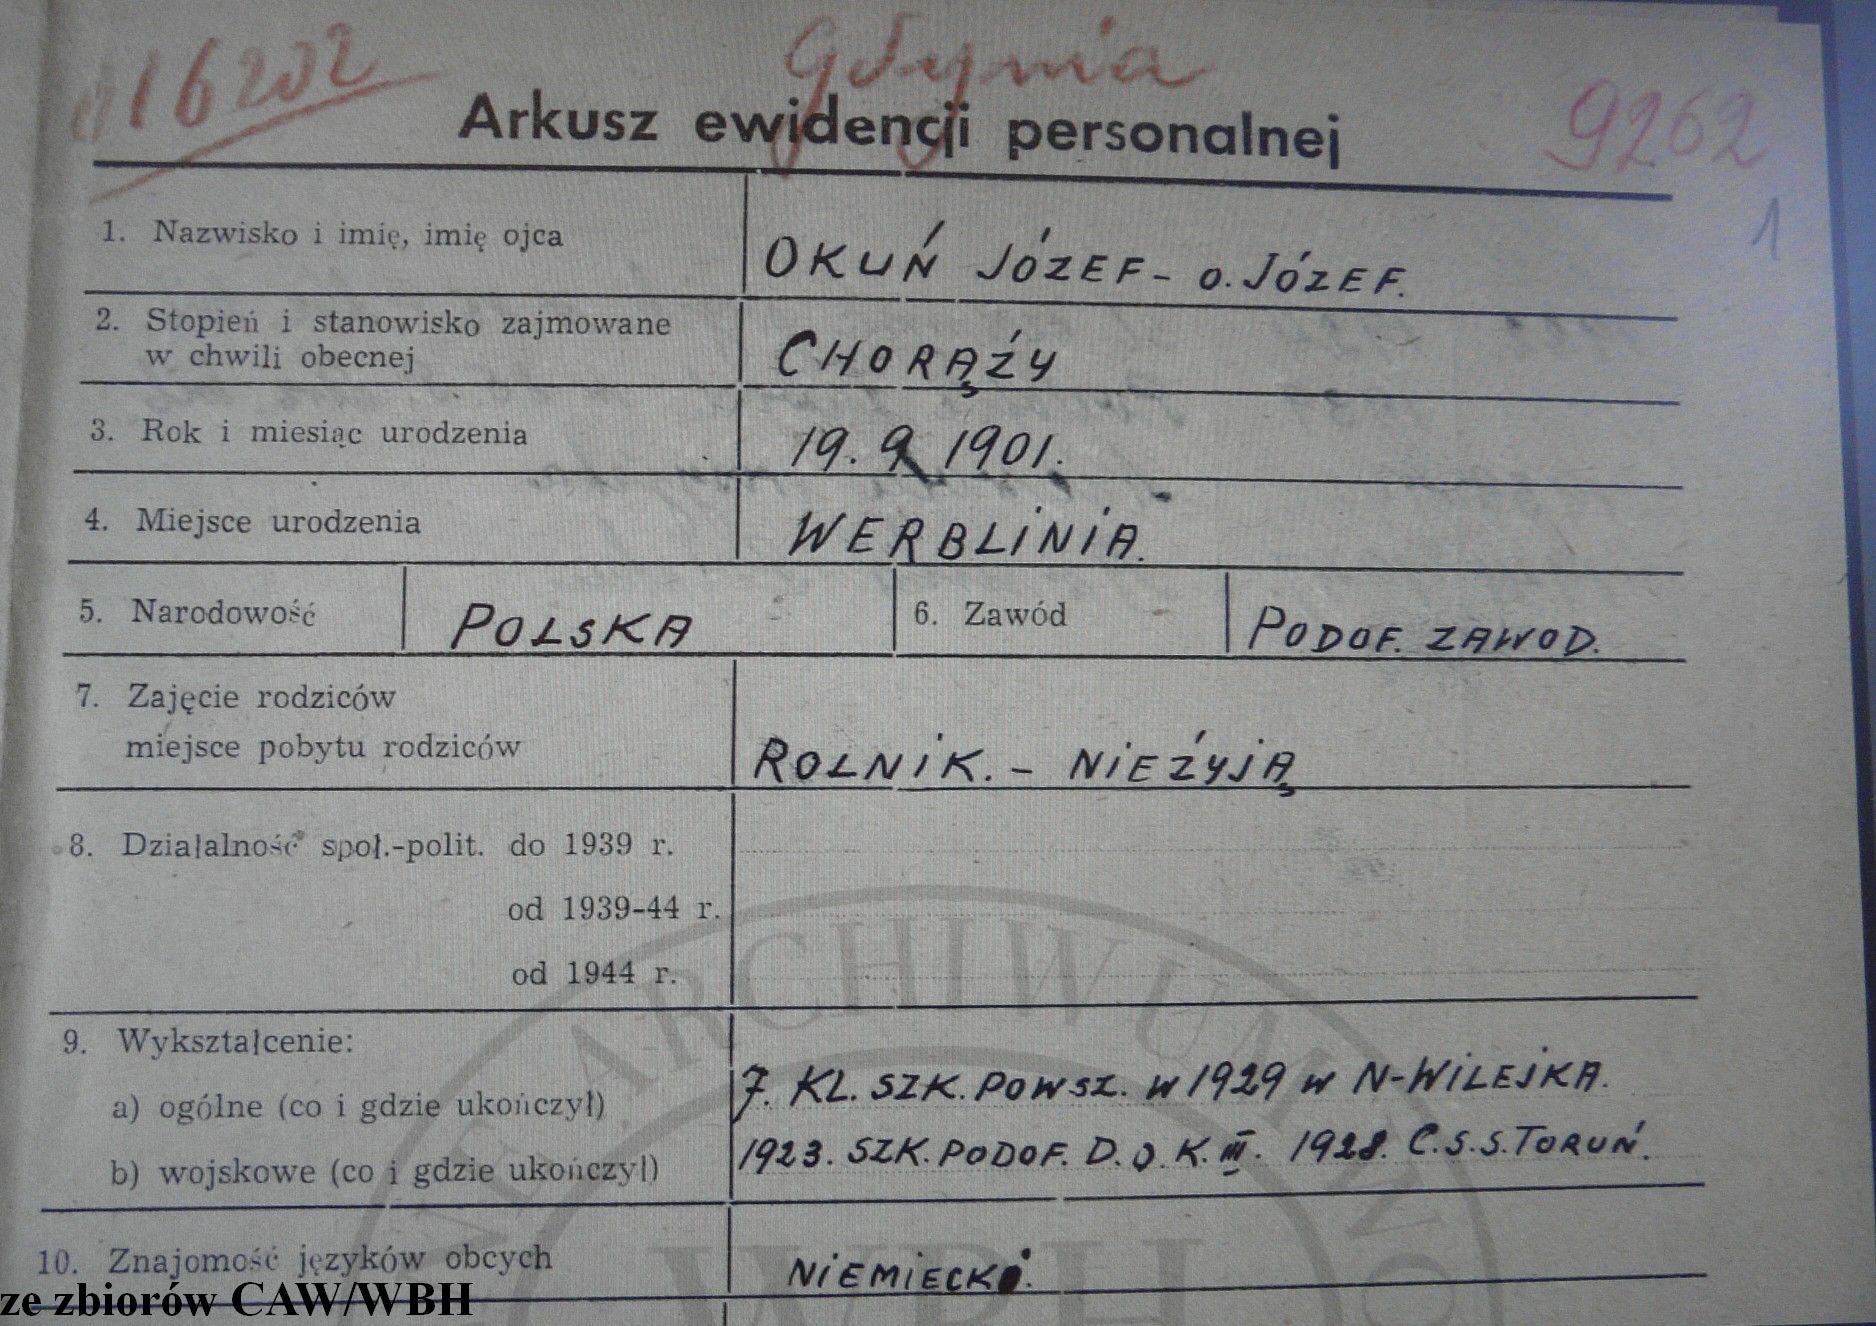 16202
Gdynia
Arkusz ewidencji personalnej
9262
1
1. Nazwisko i imię, imię ojca
OKUŃ JÓZEF - O. JÓZEF.
2. Stopień i stanowisko zajmowane
w chwili obecnej
CHORĄŻY
3. Rok i miesiąc urodzenia
19. 9 1901.
4. Miejsce urodzenia
WERBLINIA.
5. Narodowość POLSKA 6. Zawód PODOF. ZAWOD.
7. Zajęcie rodziców
miejsce pobytu rodziców
ROLNIK. - NIEŻYJĄ
8. Działalność społ.-polit. do 1939 r.
od 1939-44 r.
od 1944 r.
9. Wykształcenie:
a) ogólne (co i gdzie ukończył) 7. KL. SZK. POWSZ. W 1929 W N-WILEJKA.
b) wojskowe (co i gdzie ukończył) 1923. SZK. PODOF. D.O.K. III. 1928. C.S.S. TORUŃ.
10. Znajomość języków obcych NIEMIECKI.
ARCHIWUM WO
WBH
ze zbiorów CAW/WBH